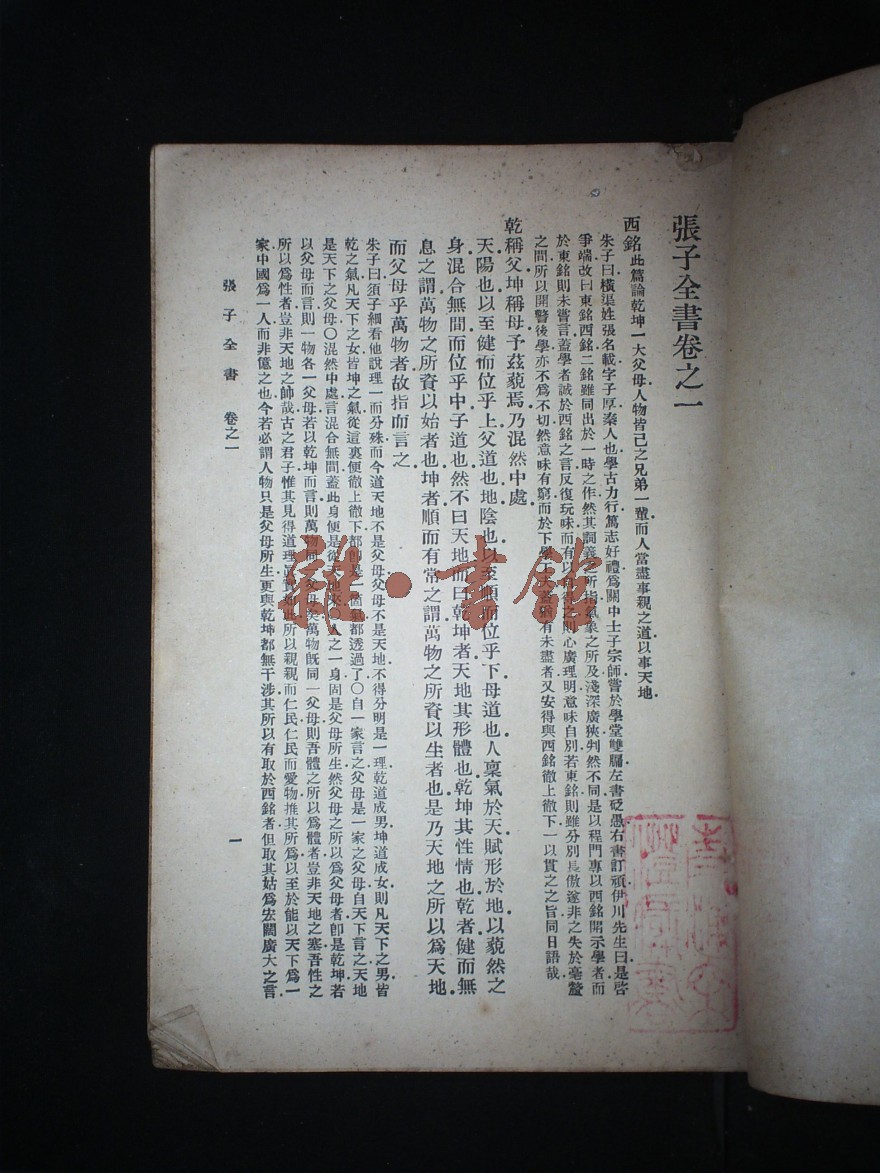 張子全書卷之一
西銘此篇論乾坤一大父母人物皆己之兄弟一輩而人當盡事親之道以事天地
朱子曰橫渠姓張名載字子厚秦人也學古力行篤志好禮爲關中士子宗師嘗於學堂雙牖左書砭愚右書訂頑伊川先生曰是啓
爭端故曰東銘西銘二銘雖同出於一時之作然其詞義之所指氣象之所及淺深廣狹判然不同是以程門專以西銘開示學者而
於東銘則未嘗言蓋學者誠於西銘之言反復玩味而有以得之則心廣理明意味自別若東銘則雖分別長傲遂非之失於毫釐
之間所以開警後學亦不爲不切然意味有窮而於下學工夫蓋猶有未盡者又安得與西銘徹上徹下一以貫之之旨同日語哉
乾稱父坤稱母予茲藐焉乃混然中處
天陽也以至健而位乎上父道也地陰也以至順而位乎下母道也人稟氣於天賦形於地以藐然之
身混合無間而位乎中子道也然不曰天地而曰乾坤者天地其形體也乾坤其性情也乾者健而無
息之謂萬物之所資以始者也坤者順而有常之謂萬物之所資以生者也是乃天地之所以爲天地
而父母乎萬物者故指而言之
朱子曰須子細看他說理一而分殊而今道天地不是父母父母不是天地不得分明是一理乾道成男坤道成女則凡天下之男皆
乾之氣凡天下之女皆坤之氣從這裏便徹上徹下都即是一箇氣都透過了○自一家言之父母是一家之父母自天下言之天地
是天下之父母○混然中處言混合無間蓋此身便是從天地來○人之一身固是父母所生然父母之所以爲父母者卽是乾坤若
以父母而言則一物各一父母若以乾坤而言則萬物同一父母矣萬物旣同一父母則吾體之所以爲體者豈非天地之塞吾性之
所以爲性者豈非天地之帥哉古之君子惟其見得道理眞實如此所以親親而仁民仁民而愛物推其所爲以至於能以天下爲一
家中國爲一人而非億之也今若必謂人物只是父母所生更與乾坤都無干涉其所以有取於西銘者但取其姑爲宏闊廣大之言
張子全書 卷之一
一
雜·書館